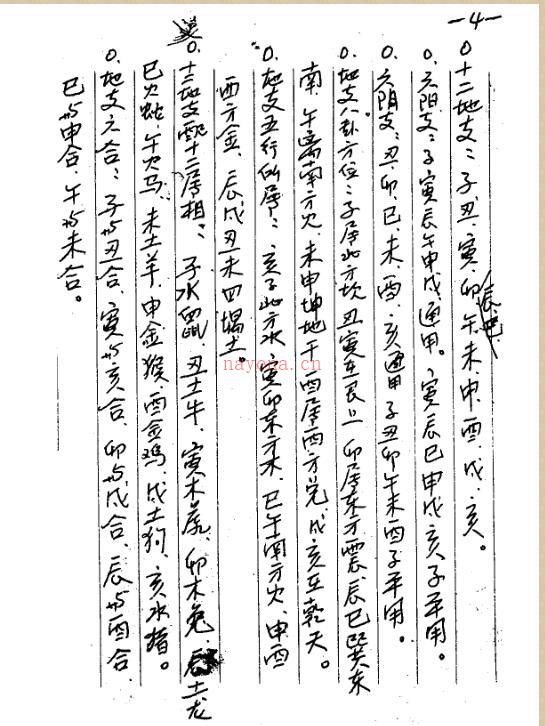 -4-
0.十二地支：子、丑、寅、卯、辰、巳、午、未、申、酉、戌、亥。
0.六阳支：子寅辰午申戌通甲。寅辰巳申戌亥子平用。
0.六阴支：丑、卯、巳、未、酉、亥通甲子丑卯午未酉子平用。
0.地支八卦方位：子居北方坎丑寅东艮上卯居东方震辰巳巽东
南、午离南方火、未申坤地于酉居西方兑、戌亥在乾天。
0.地支五行所属：亥子北方水、寅卯东方木、巳午南方火、申酉
西方金、辰戌丑未四隅土。
0.十二地支配十二属相：子水鼠丑土牛、寅木虎、卯木兔、辰土龙
巳火蛇、午火马、未土羊、申金猴酉金鸡戌土狗、亥水猪。
0.地支六合：子与丑合、寅与亥合、卯与戌合、辰与酉合
巳与申合、午与未合。
nayona.cn